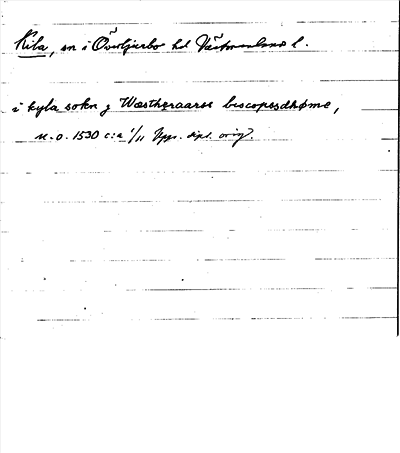 Kila, sn i Övertjurbo hd Västmanlands l.
i kyla sokn j Wæsthgraarss biscopssdhøme,
u. o. 1530 c:a 1/11 Upps. dipl. orig.